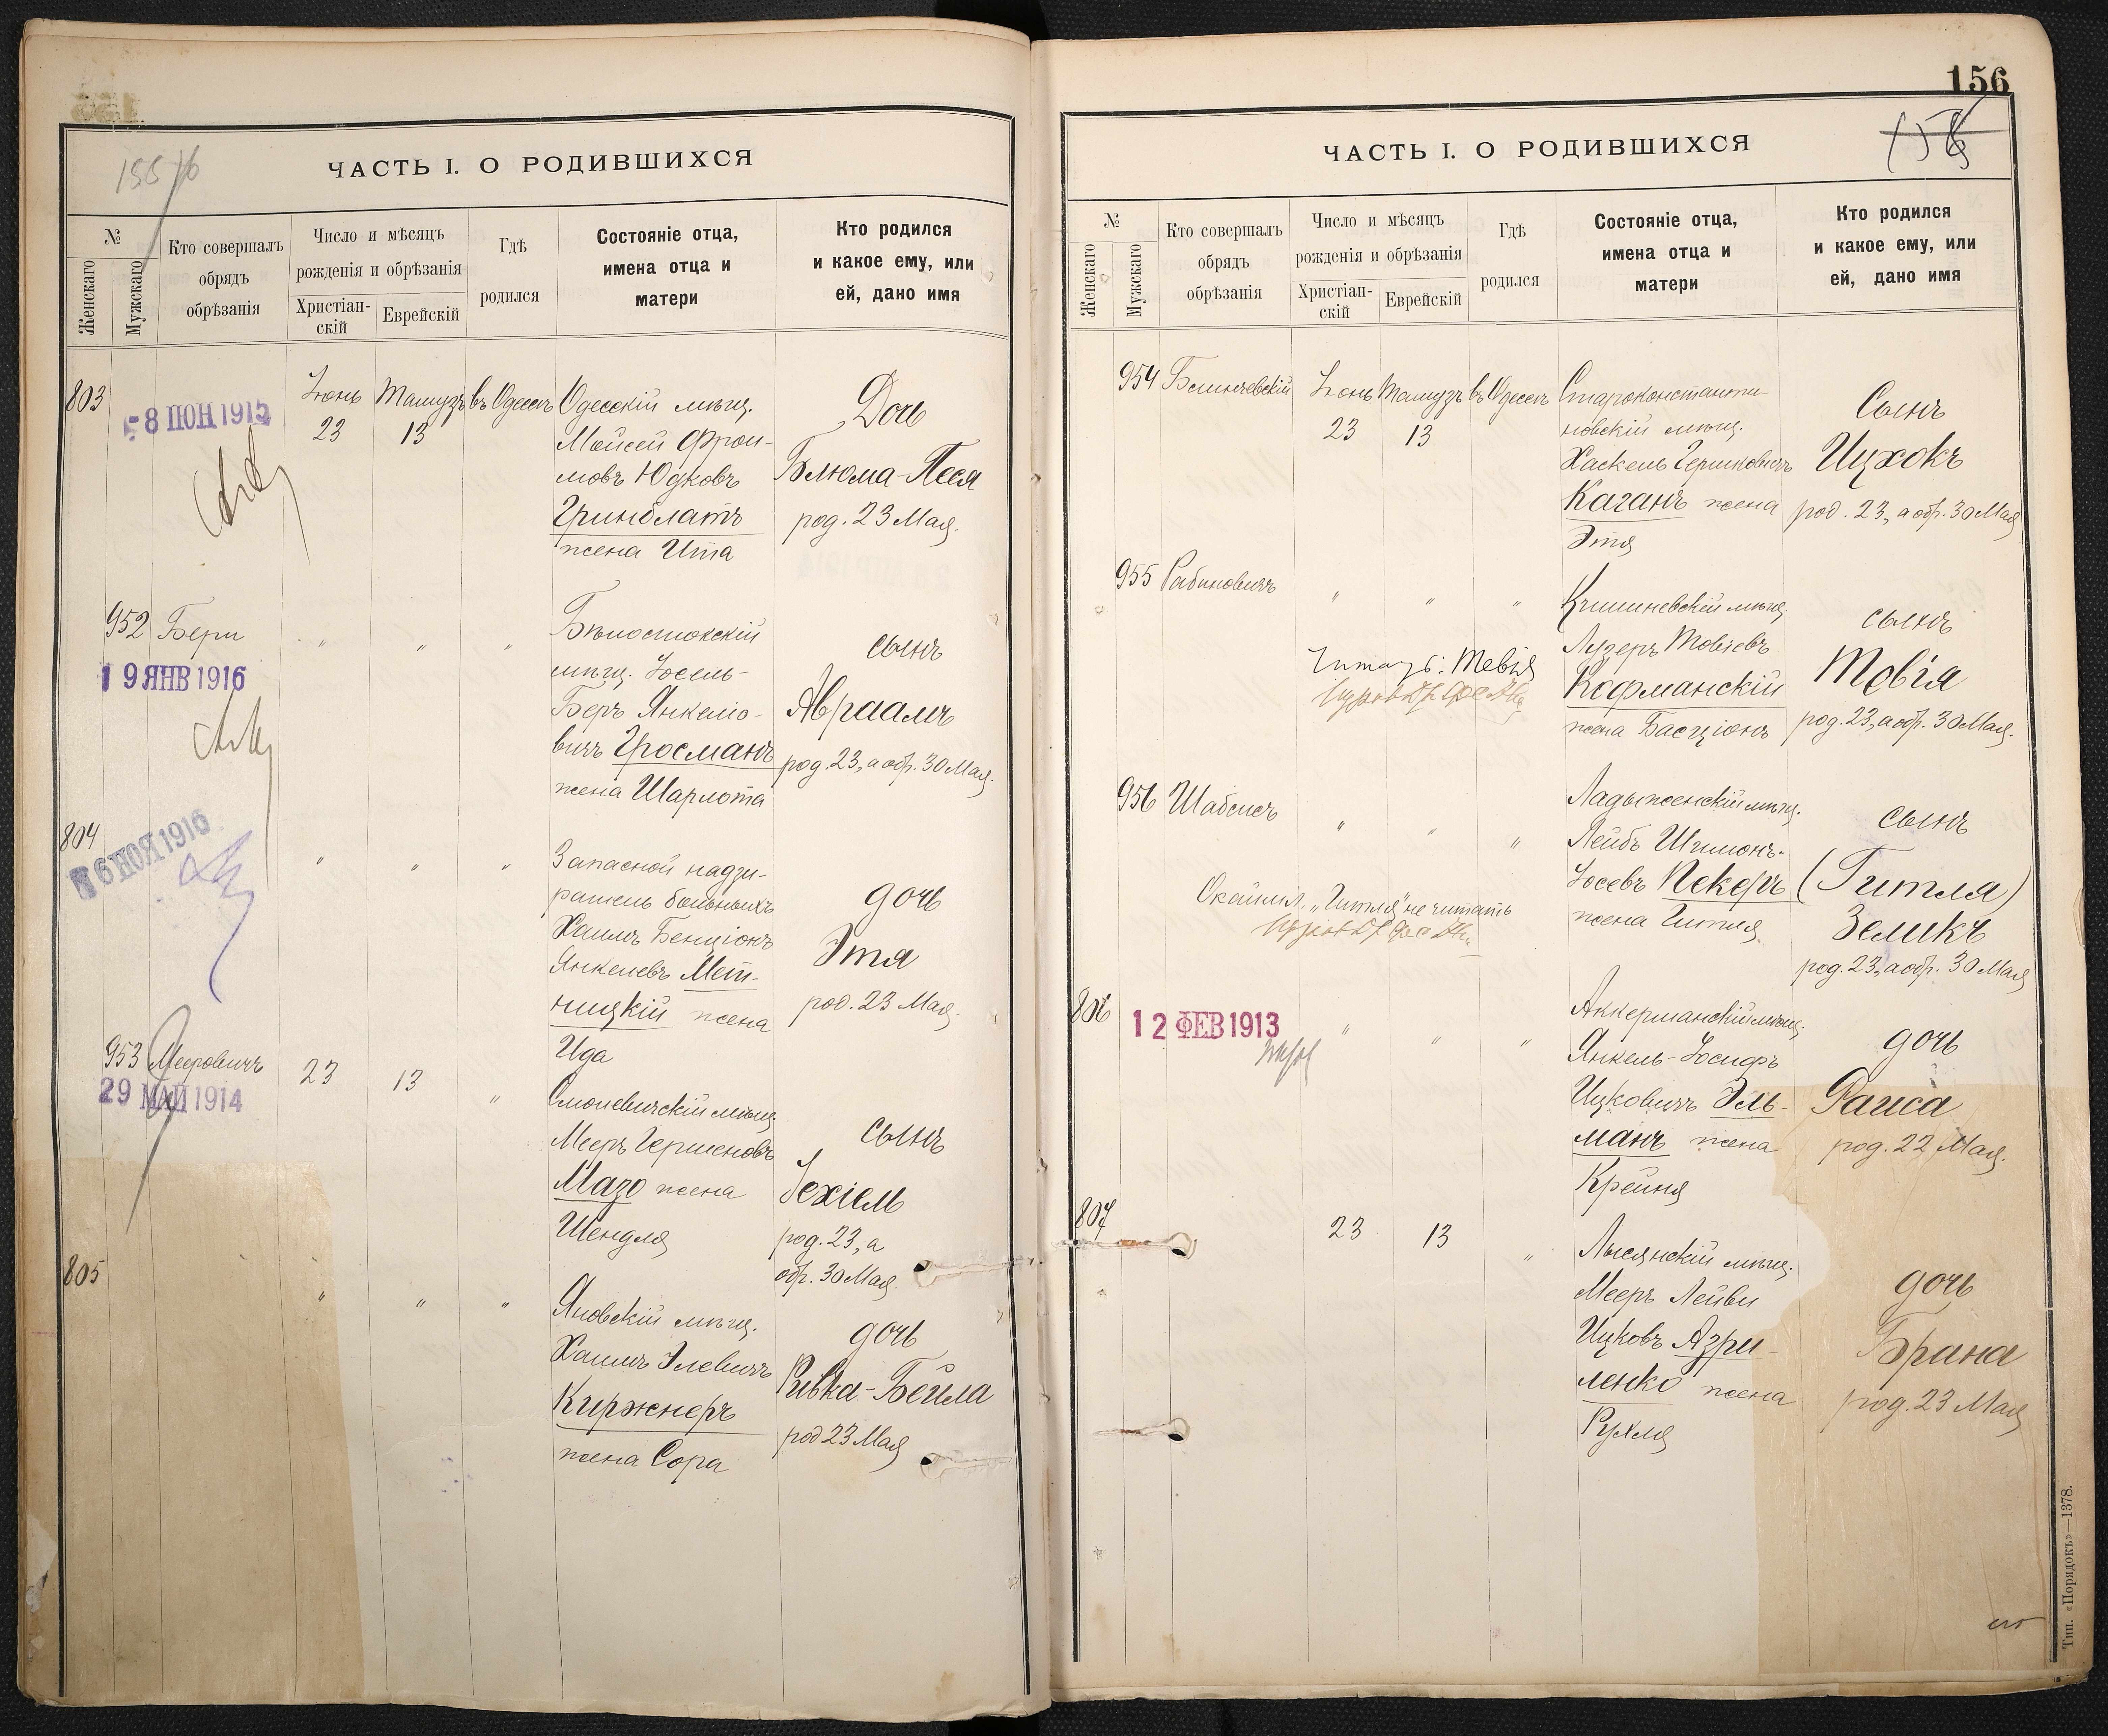 155
ЧАСТЬ I. О РОДИВШИХСЯ
№
Женскаго
Мужскаго
Кто совершалъ
обрядъ
обрѣзанія
Число и мѣсяцъ
рожденія и обрѣзанія
Христіан-
скій
Еврейскій
Гдѣ
родился
Состояніе отца,
имена отца и
матери
Кто родился
и какое ему, или
ей, дано имя
803
-8 ІЮН 1915
Іюнь
23
Тамузъ
13
въ Одессѣ
Одесскій мѣщ.
Мойсей Фрои-
мовъ Юдковъ
Гринблатъ
жена Ита
Дочь
Блюма-Песя
род. 23 Мая.
952 Бери
19 ЯНВ 1916
" " "
Бѣлостокскій
мѣщ. Іосель-
Беръ Янкеліо-
вичъ Гросманъ
жена Шарлота
сынъ
Авраамъ
род. 23, а обр. 30 Мая.
804
6 НОЯ 1916
" " "
Запасной надзи-
ратель больныхъ
Хаимъ Бенціонъ
Янкелевъ Мет-
ницкій жена
Ида
дочь
Этя
род. 23 Мая.
953 Мееровичъ
29 МАЙ 1914
23
13
"
Смолевичскій мѣщ.
Мееръ Гершеновъ
Мазо жена
Шендля
сынъ
Іехіель
род. 23, а
обр. 30 Мая.
805
" " "
Яновскій мѣщ.
Хаимъ Элевичъ
Киржнеръ
жена Сора
дочь
Ривка-Бейла
род 23 Мая
156
ЧАСТЬ I. О РОДИВШИХСЯ
№
Женскаго
Мужскаго
Кто совершалъ
обрядъ
обрѣзанія
Число и мѣсяцъ
рожденія и обрѣзанія
Христіан-
скій
Еврейскій
Гдѣ
родился
Состояніе отца,
имена отца и
матери
Кто родился
и какое ему, или
ей, дано имя
954
Іюнь
23
Тамузъ
13
въ Одессѣ
Староконстанти-
новскій мѣщ.
Хаскель Гершковичъ
Каганъ жена
Этя
Сынъ
Ицхокъ
род. 23, а обр. 30 Мая
955 Рабиновичъ
" " "
Кишиневскій мѣщ.
Лузеръ Товіевъ
Кофманскій
жена Басціонъ
сынъ
Товія
род. 23, а обр. 30 Мая.
Читать: Тевія
956 Шабсисъ
" " "
Ладыженскій мѣщ.
Лейбъ Шимонъ-
Іосевъ Пекеръ
жена Гитля
сынъ
(Гитля)
Зеликъ
род. 23, а обр. 30 Мая
"Гитля" не читать
806
12 ФЕВ 1913
" " "
Аккерманскій мѣщ.
Янкель-Іосифъ
Ицковичъ Эль-
манъ жена
Крейня
дочь
Раиса
род. 22 Мая.
807
23
13
"
Лысянскій мѣщ.
Мееръ Лейви
Ицковъ Азри-
ленко жена
Рухля
дочь
Брана
род. 23 Мая
Тип. «Порядокъ»—1378.